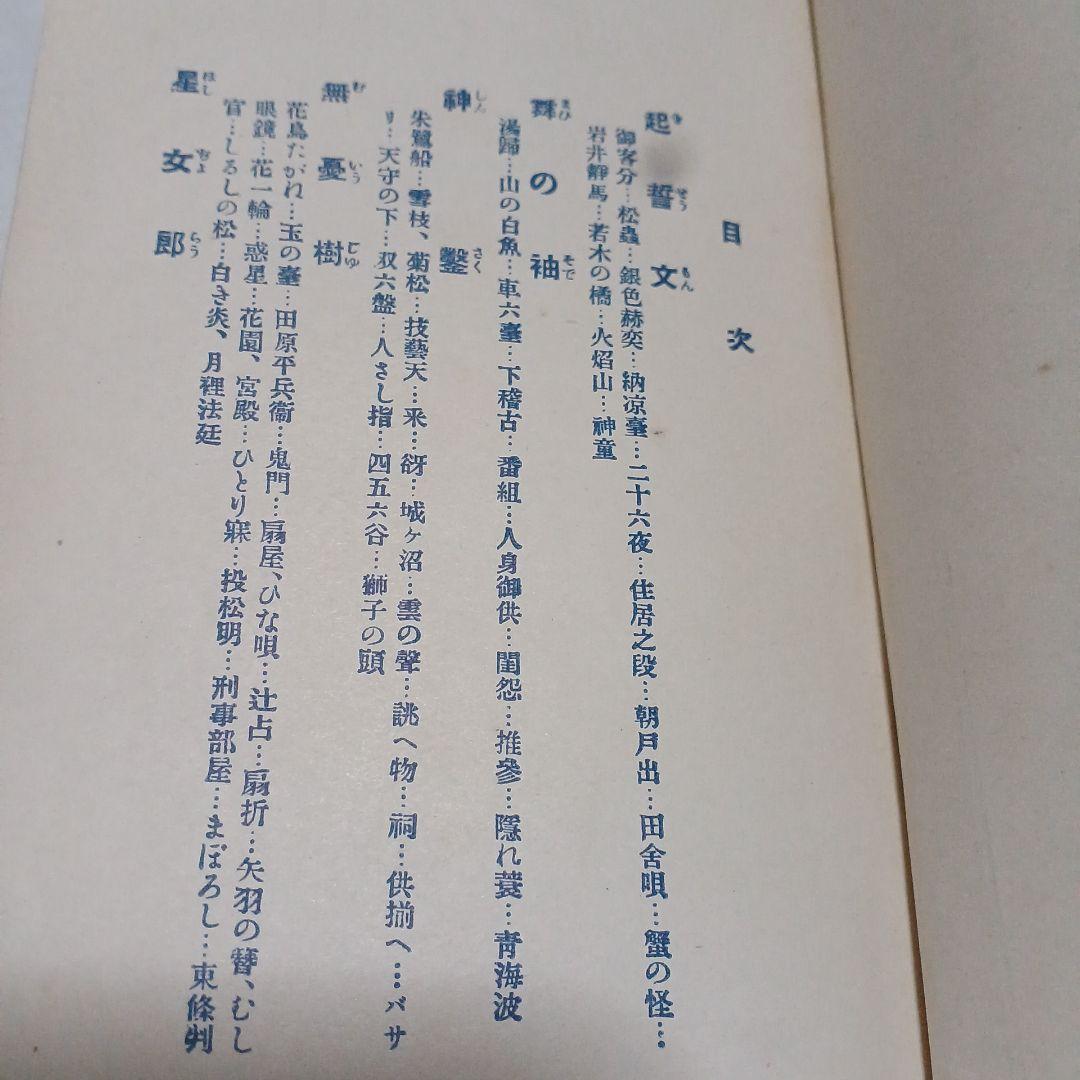 目次
起誓文
御客分…松蟲…銀色赫奕…納凉臺…二十六夜…住居之段…朝戸出…田舍唄…蟹の怪…
岩井靜馬…若木の橘…火焰山…神童
舞の袖
湯歸…山の白魚…車六臺…下稽古…番組…人身御供…閨怨…推參…隱れ蓑…靑海波
神鑿
朱鷺船…雪枝、菊松…技藝天…釆…谺…城ヶ沼…雲の聲…誂へ物…祠…供揃へ…バサ
リ…天守の下…双六盤…人さし指…四五六谷…獅子の頭
無憂樹
花鳥たがね…玉の臺…田原平兵衞…鬼門…扇屋、ひな唄…辻占…扇折…矢羽の簪、むし
眼鏡…花一輪…惑星…花園、宮殿…ひとり寐…投松明…刑事部屋…まぼろし…東條判
官…しるしの松…白き炎、月裡法廷
星女郎